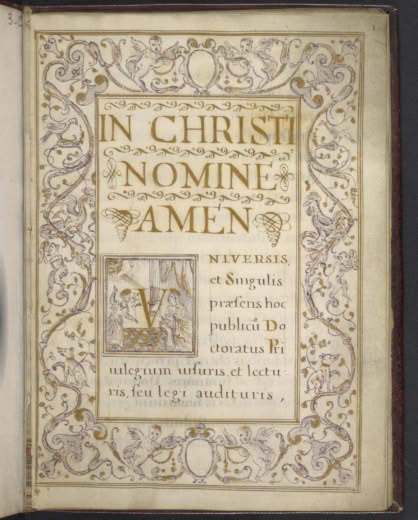 IN CHRISTI
NOMINE
AMEN
VNIVERSIS,
et Singulis
præsens hoc
publicū Do
ctoratus Pri
uilegium uisuris, et lectu
ris, seu legi audituris,